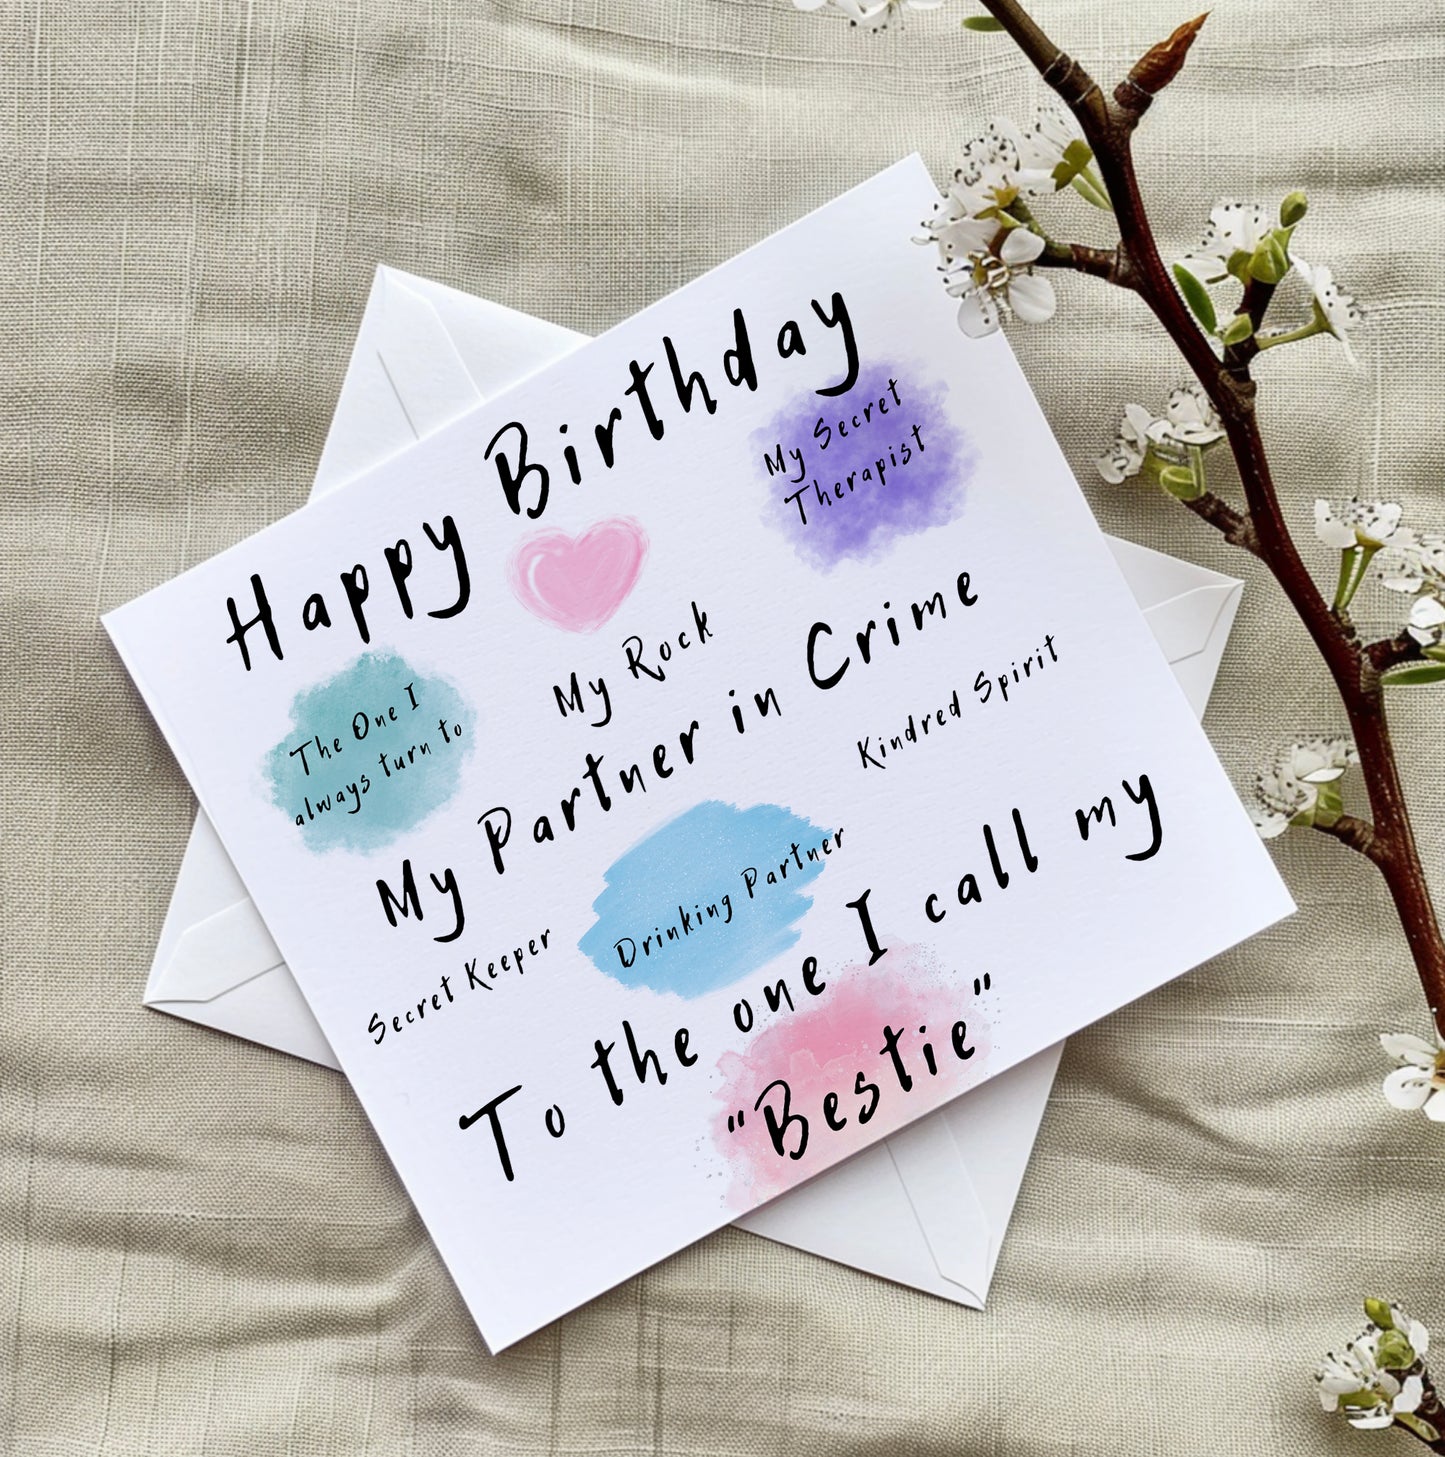 Happy Birthday
My Secret
Therapist
The One I
always turn to
My Rock
My Partner in Crime
Kindred Spirit
Secret Keeper
Drinking Partner
To the one I call my
"Bestie"